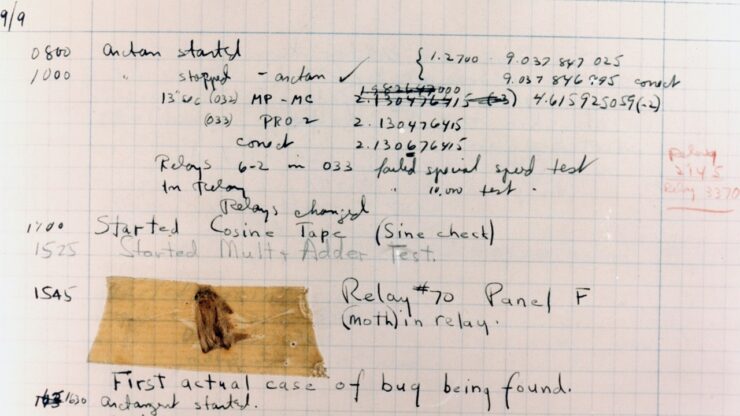 9/9
0800 arctan started { 1.2700 9.037 847 025
1000 " stopped - arctan ✓ 9.037 846 995 correct
13"sec (032) MP - MC 1.982647000 2.130476415 (-3) 4.615925059(-2)
(033) PRO 2 2.130476415
correct 2.130676415
Relays 6-2 in 033 failed special speed test
In Relay " 10,000 test .
Relays changed
1700 Started Cosine Tape (Sine check)
1525 Started Mult + Adder Test.
Relay
2145
Relay 3370
1545 Relay #70 Panel F
(moth) in relay.
First actual case of bug being found.
1630 arctangent started.